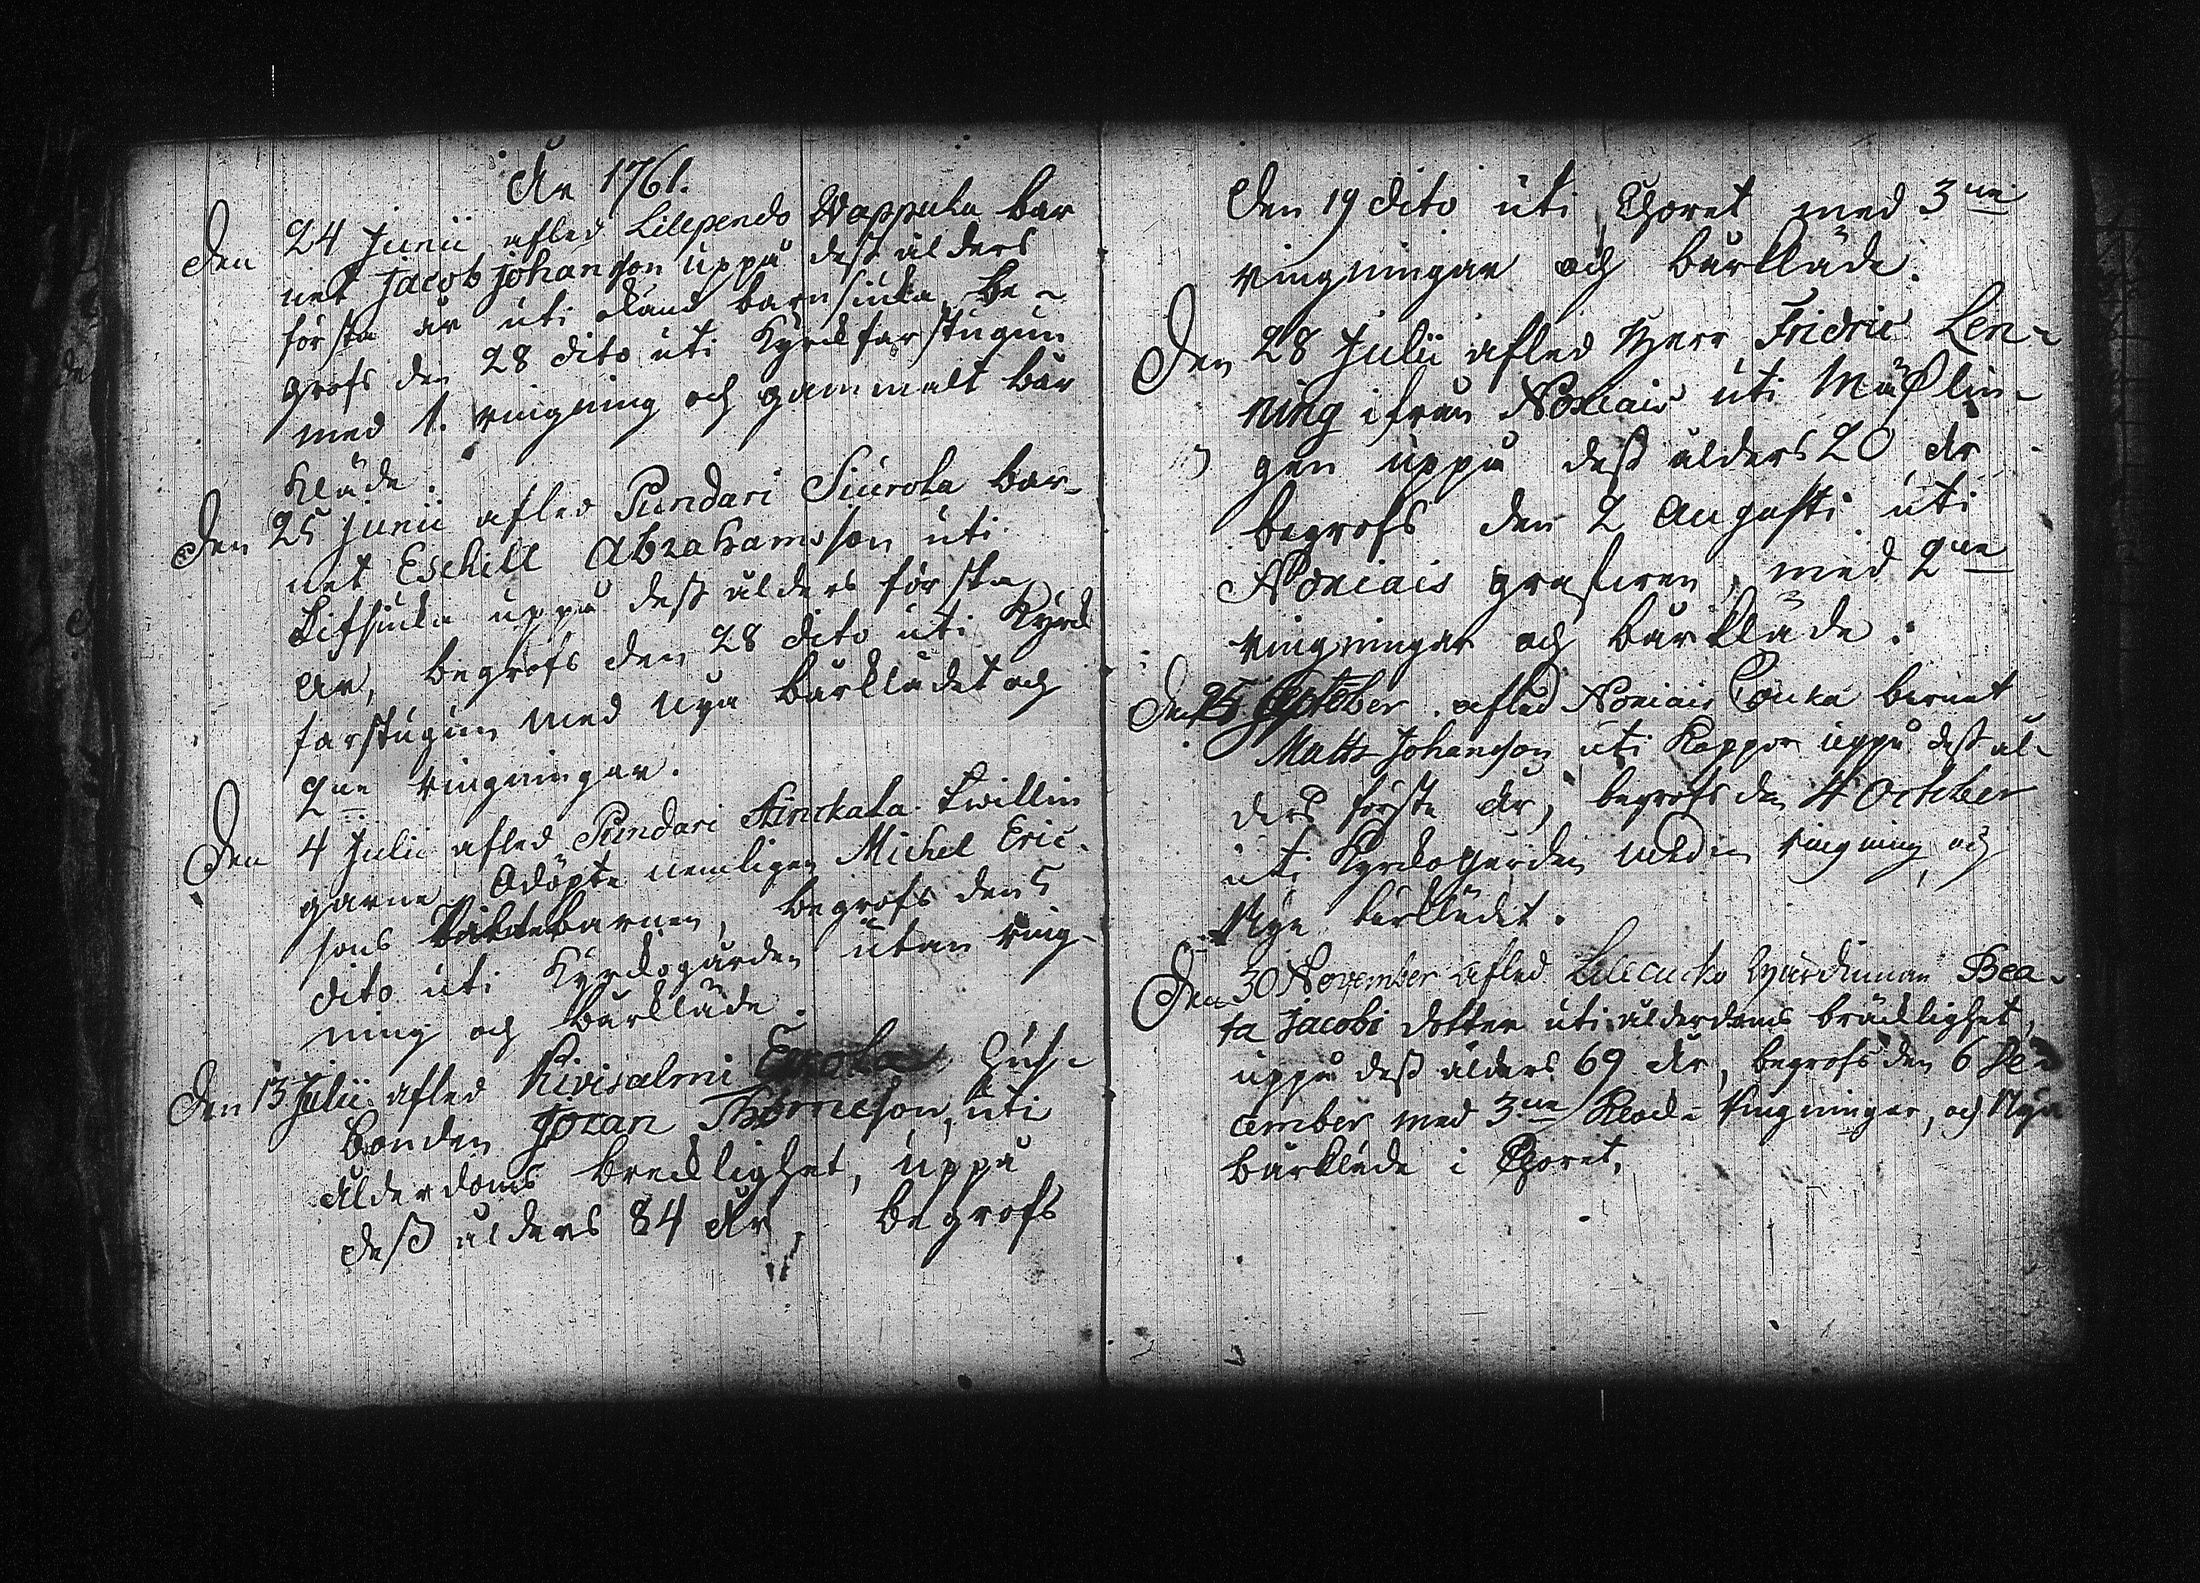 År 1761.
Den 24 Junii afled Lilepends Wappula bar
net Jacob Johansson uppå dess ålders
första år uti okänd barnsiuka, be-
grofs den 28 dito uti Kyrckfarstugun
med 1. ringning och gammalt bår
kläde.
Den 25 Junii afled Pundari Siurola bar-
net Eschill Abrahamsson uti
Lifsiuka uppå dess ålders första
År, begrofs den 28 dito uti Kyrck
farstugun med nya bårklädet och
2ne ringningar.
Den 4 Julii afled Pundari twillin
garne Odöpte nemligen Michel Eric-
sons barnen, begrofs den 5
dito uti Kyrckogården utan ring-
ning och bårkläde.
Den 13 Julii afled Kivisalmi Hus-
bonden Jöran Thomeson, uti
Ålderdoms brecklighet, uppå
dess ålders 84 År, begrofs
Den 19 dito uti Choret med 3ne
ringningar och bårkläde.
Den 28 Julii afled Herr Fridric Len-
ning ifrån Noxiais uti Mässlin-
gen uppå dess ålders 20 År
begrofs den 2 Augusti uti
Noxiais grafwen, med 2ne
ringningar och bårkläde.
Den 25 September afled Noxiais barnet
Matts Johansson uti Koppor uppå dess ål-
ders första År, begrofs den 4 October
uti Kyrckogården med en ringning och
Nya bårklädet.
Den 30 November afled Lilecucko Bea-
ta Jacobs dotter uti ålderdoms bräcklighet,
uppå dess ålders 69 År, begrofs den 6 De-
cember med 3ne Ringningar, och Nya
bårkläde i Choret.